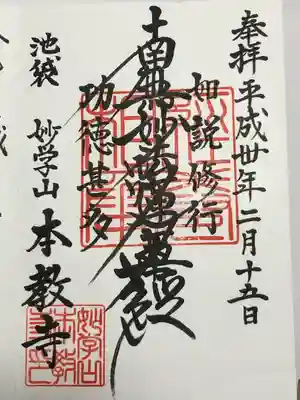 奉拝 平成卅年二月十五日
如説修行
南無妙法蓮華経
功徳甚多
池袋 妙学山 本教寺
妙学山
本教